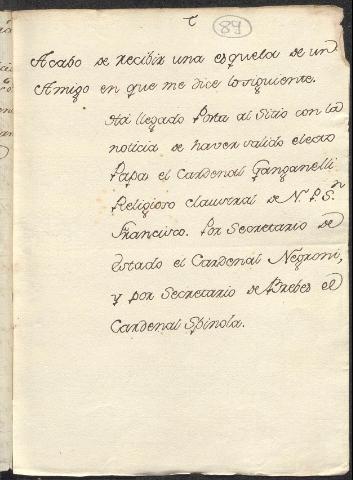 89
Acabo de recibir una esquela de un
Amigo en que me dice lo siguiente.
Ha llegado Posta al Sitio con la
noticia de haver salido electo
Papa el Cardenal Ganganelli
Religioso claustral de N. P. S.n
Francisco. Por Secretario de
Estado el Cardenal Negroni,
y por Secretario de Brebes el
Cardenal Spinola.